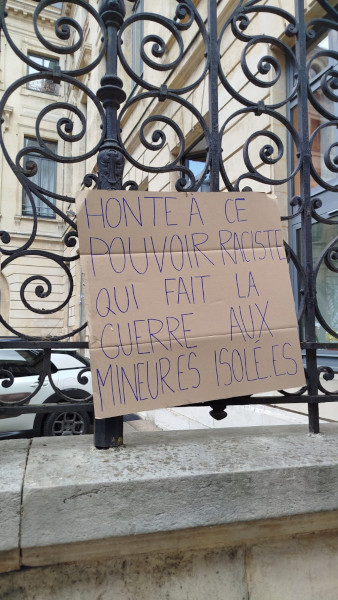 HONTE À CE
POUVOIR RACISTE
QUI FAIT LA
GUERRE AUX
MINEURES ISOLÉ.ES